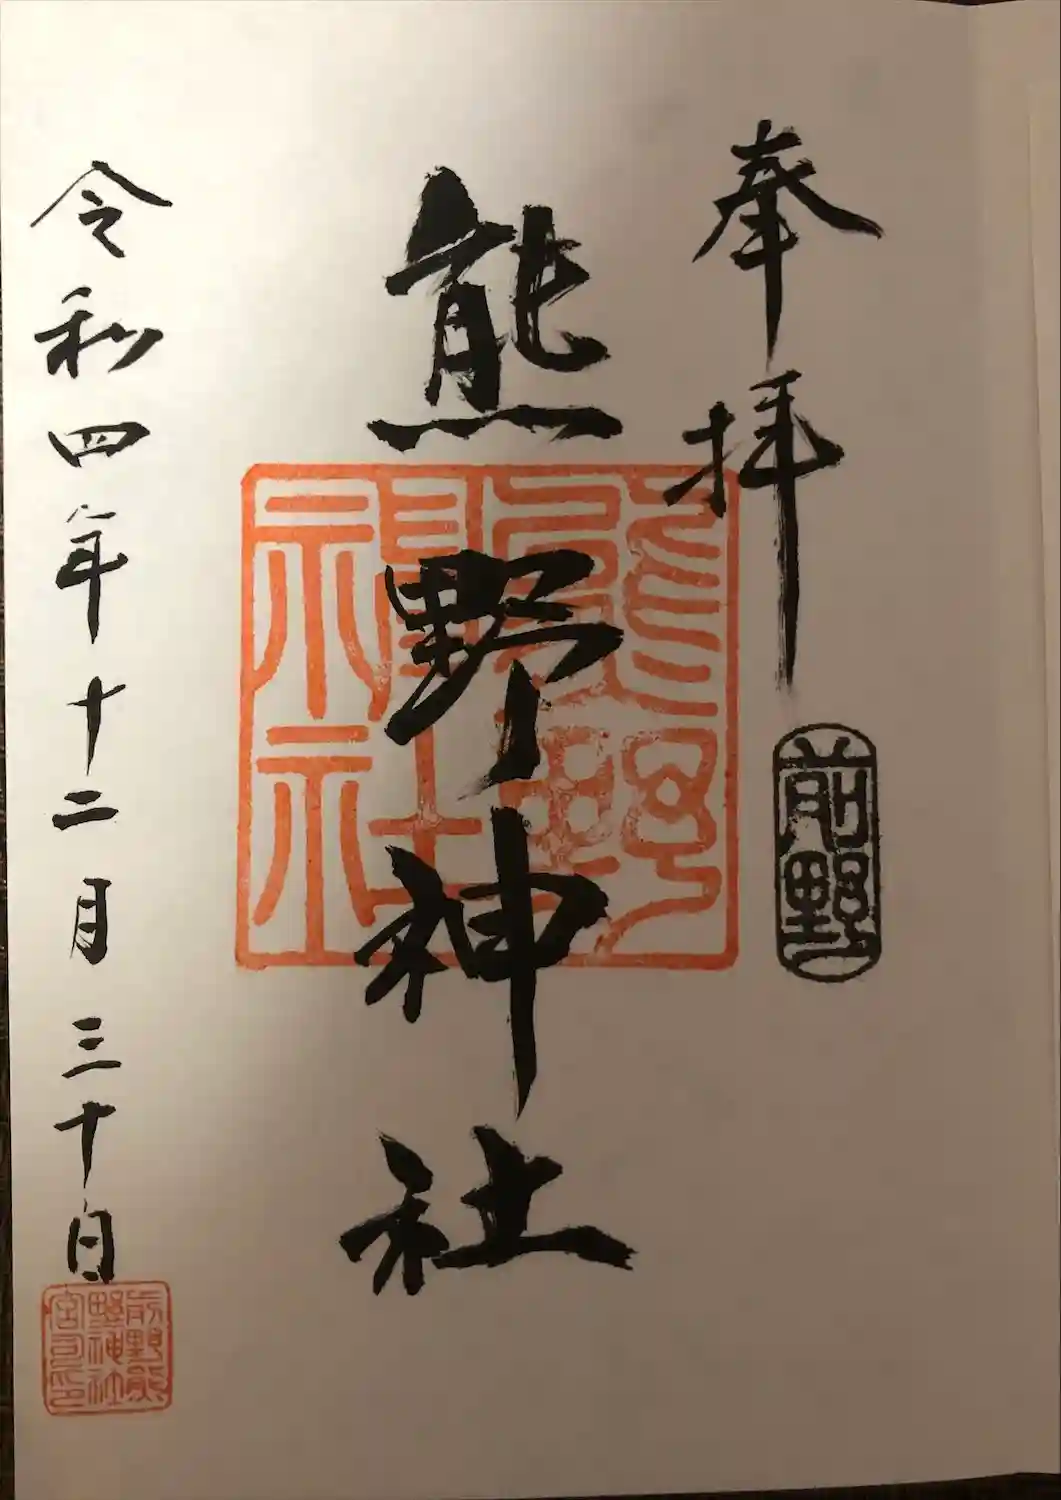 奉拝
前野
熊野神社
熊野神社
令和四年十二月三十日
前野熊
野神社
宮司印